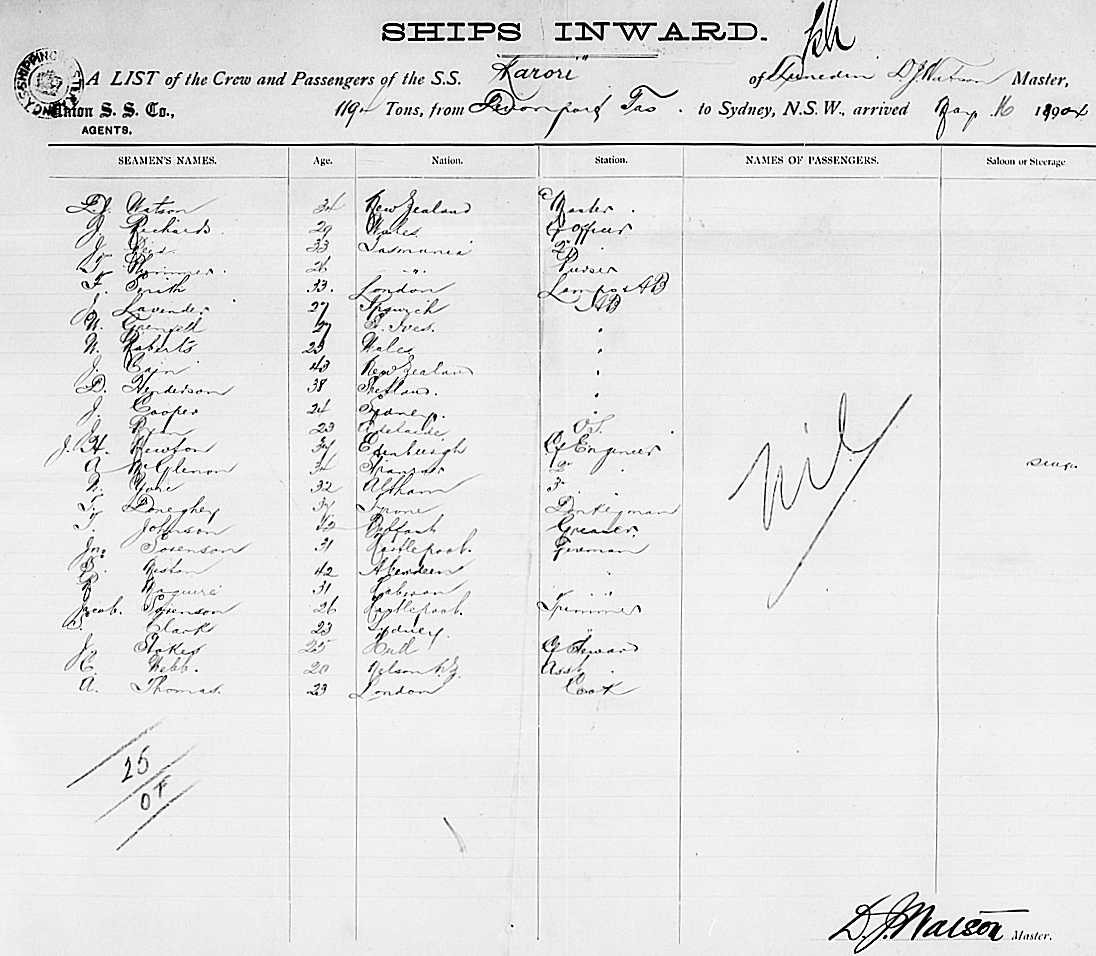 SHIPS INWARD.
A LIST of the Crew and Passengers of the S.S. "Karori" of Dunedin D. J. Watson Master,
Union S. S. Co., Tons, from Devonport Tas. to Sydney, N.S.W., arrived 16 1904
AGENTS.
SEAMEN'S NAMES. Age. Nation. Station. NAMES OF PASSENGERS. Saloon or Steerage
D.J. Watson 34 New Zealand Master.
J. Richards 29 Wales Officer
J. 33 Tasmania 2"
26 " " Purser
F. Smith 33. London Lamps & AB
J. Lavender 27 Ipswich AB
W. Grenfell 27 St. Ives. "
W. Roberts 23 Wales "
J. Cain 43 New Zealand "
D. Henderson 38 Shetland. "
J. Cooper 24 Sydney. "
J. Ryan 23 Adelaide O.S.
J. H. Newton 37 Edinburgh Engineer
A. McGlenon 34 2" "
32 3. "
T. Doneghey 37 Tyrone Donkeyman
T. Johnson 42 Greaser.
Jno. Sorenson 31 Hartlepool. Fireman
42 Aberdeen "
Maguire 31 " "
Jacob. Sorenson 26 Hartlepool. Trimmer
Clark 23 Sydney. "
J. Stokes 25 Hull Steward
C. Webb. 20 Nelson N.Z. Asst.
A. Thomas. 23 London Cook
Nil
25
07
D. J. Watson Master.